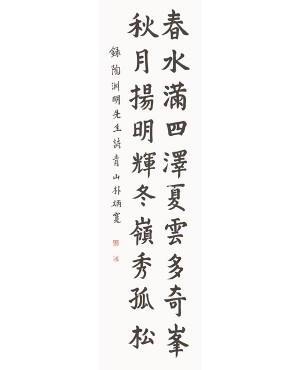 春水滿四澤夏雲多奇峯
秋月揚明輝冬嶺秀孤松
錄陶渊明先生詩青山朴炳寛